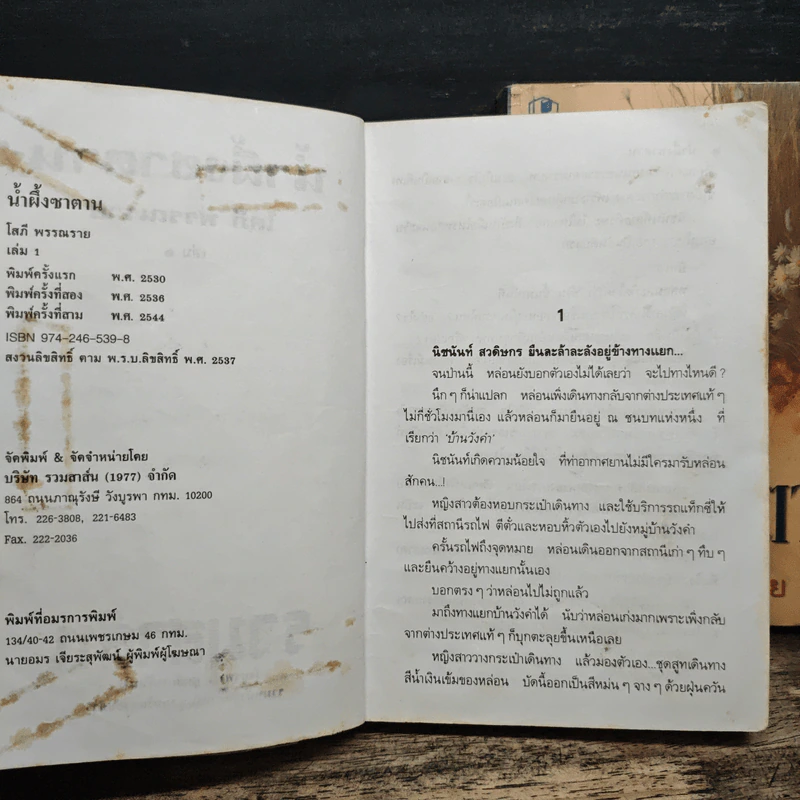 น้ำผึ้งซาตาน
โสภี พรรณราย
เล่ม 1
พิมพ์ครั้งแรก พ.ศ. 2530
พิมพ์ครั้งที่สอง พ.ศ. 2536
พิมพ์ครั้งที่สาม พ.ศ. 2544
ISBN 974-246-539-8
สงวนลิขสิทธิ์ ตาม พ.ร.บ.ลิขสิทธิ์ พ.ศ. 2537
จัดพิมพ์ & จัดจำหน่ายโดย
บริษัท รวมสาส์น (1977) จำกัด
864 ถนนภาณุรังษี วังบูรพา กทม. 10200
โทร. 226-3808, 221-6483
Fax. 222-2036
พิมพ์ที่อมรการพิมพ์
134/40-42 ถนนเพชรเกษม 46 กทม.
นายอมร เจียระสุพัฒน์ ผู้พิมพ์ผู้โฆษณา
1
นิชนันท์ สวดิษกร ยืนละล้าละลังอยู่ข้างทางแยก...
จนป่านนี้ หล่อนยังบอกตัวเองไม่ได้เลยว่า จะไปทางไหนดี ?
นึก ๆ ก็น่าแปลก หล่อนเพิ่งเดินทางกลับจากต่างประเทศแท้ ๆ
ไม่กี่ชั่วโมงมานี่เอง แล้วหล่อนก็มายืนอยู่ ณ ชนบทแห่งหนึ่ง ที่
เรียกว่า 'บ้านวังคำ'
นิชนันท์เกิดความน้อยใจ ที่ท่าอากาศยานไม่มีใครมารับหล่อน
สักคน...!
หญิงสาวต้องหอบกระเป๋าเดินทาง และใช้บริการรถแท็กซี่ให้
ไปส่งที่สถานีรถไฟ ตีตั๋วและหอบหิ้วตัวเองไปยังหมู่บ้านวังคำ
ครั้นรถไฟถึงจุดหมาย หล่อนเดินออกจากสถานีเก่า ๆ ทึบ ๆ
และยืนคว้างอยู่ทางแยกนั้นเอง
บอกตรง ๆ ว่าหล่อนไปไม่ถูกแล้ว
มาถึงทางแยกบ้านวังคำได้ นับว่าหล่อนเก่งมากเพราะเพิ่งกลับ
จากต่างประเทศแท้ ๆ ก็บุกตะลุยขึ้นเหนือเลย
หญิงสาววางกระเป๋าเดินทาง แล้วมองตัวเอง...ชุดสูทเดินทาง
สีน้ำเงินเข้มของหล่อน บัดนี้ออกเป็นสีหม่น ๆ จาง ๆ ด้วยฝุ่นควัน